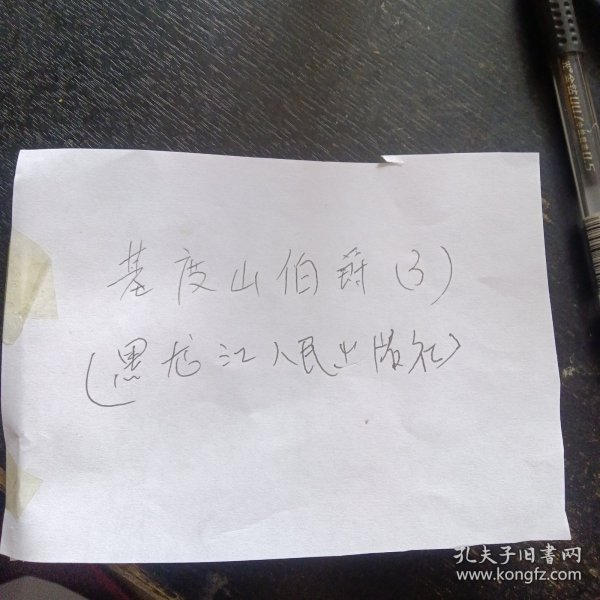 基度山伯爵(3)
(黑龙江人民出版社)
孔夫子旧書网
www.kongfz.com